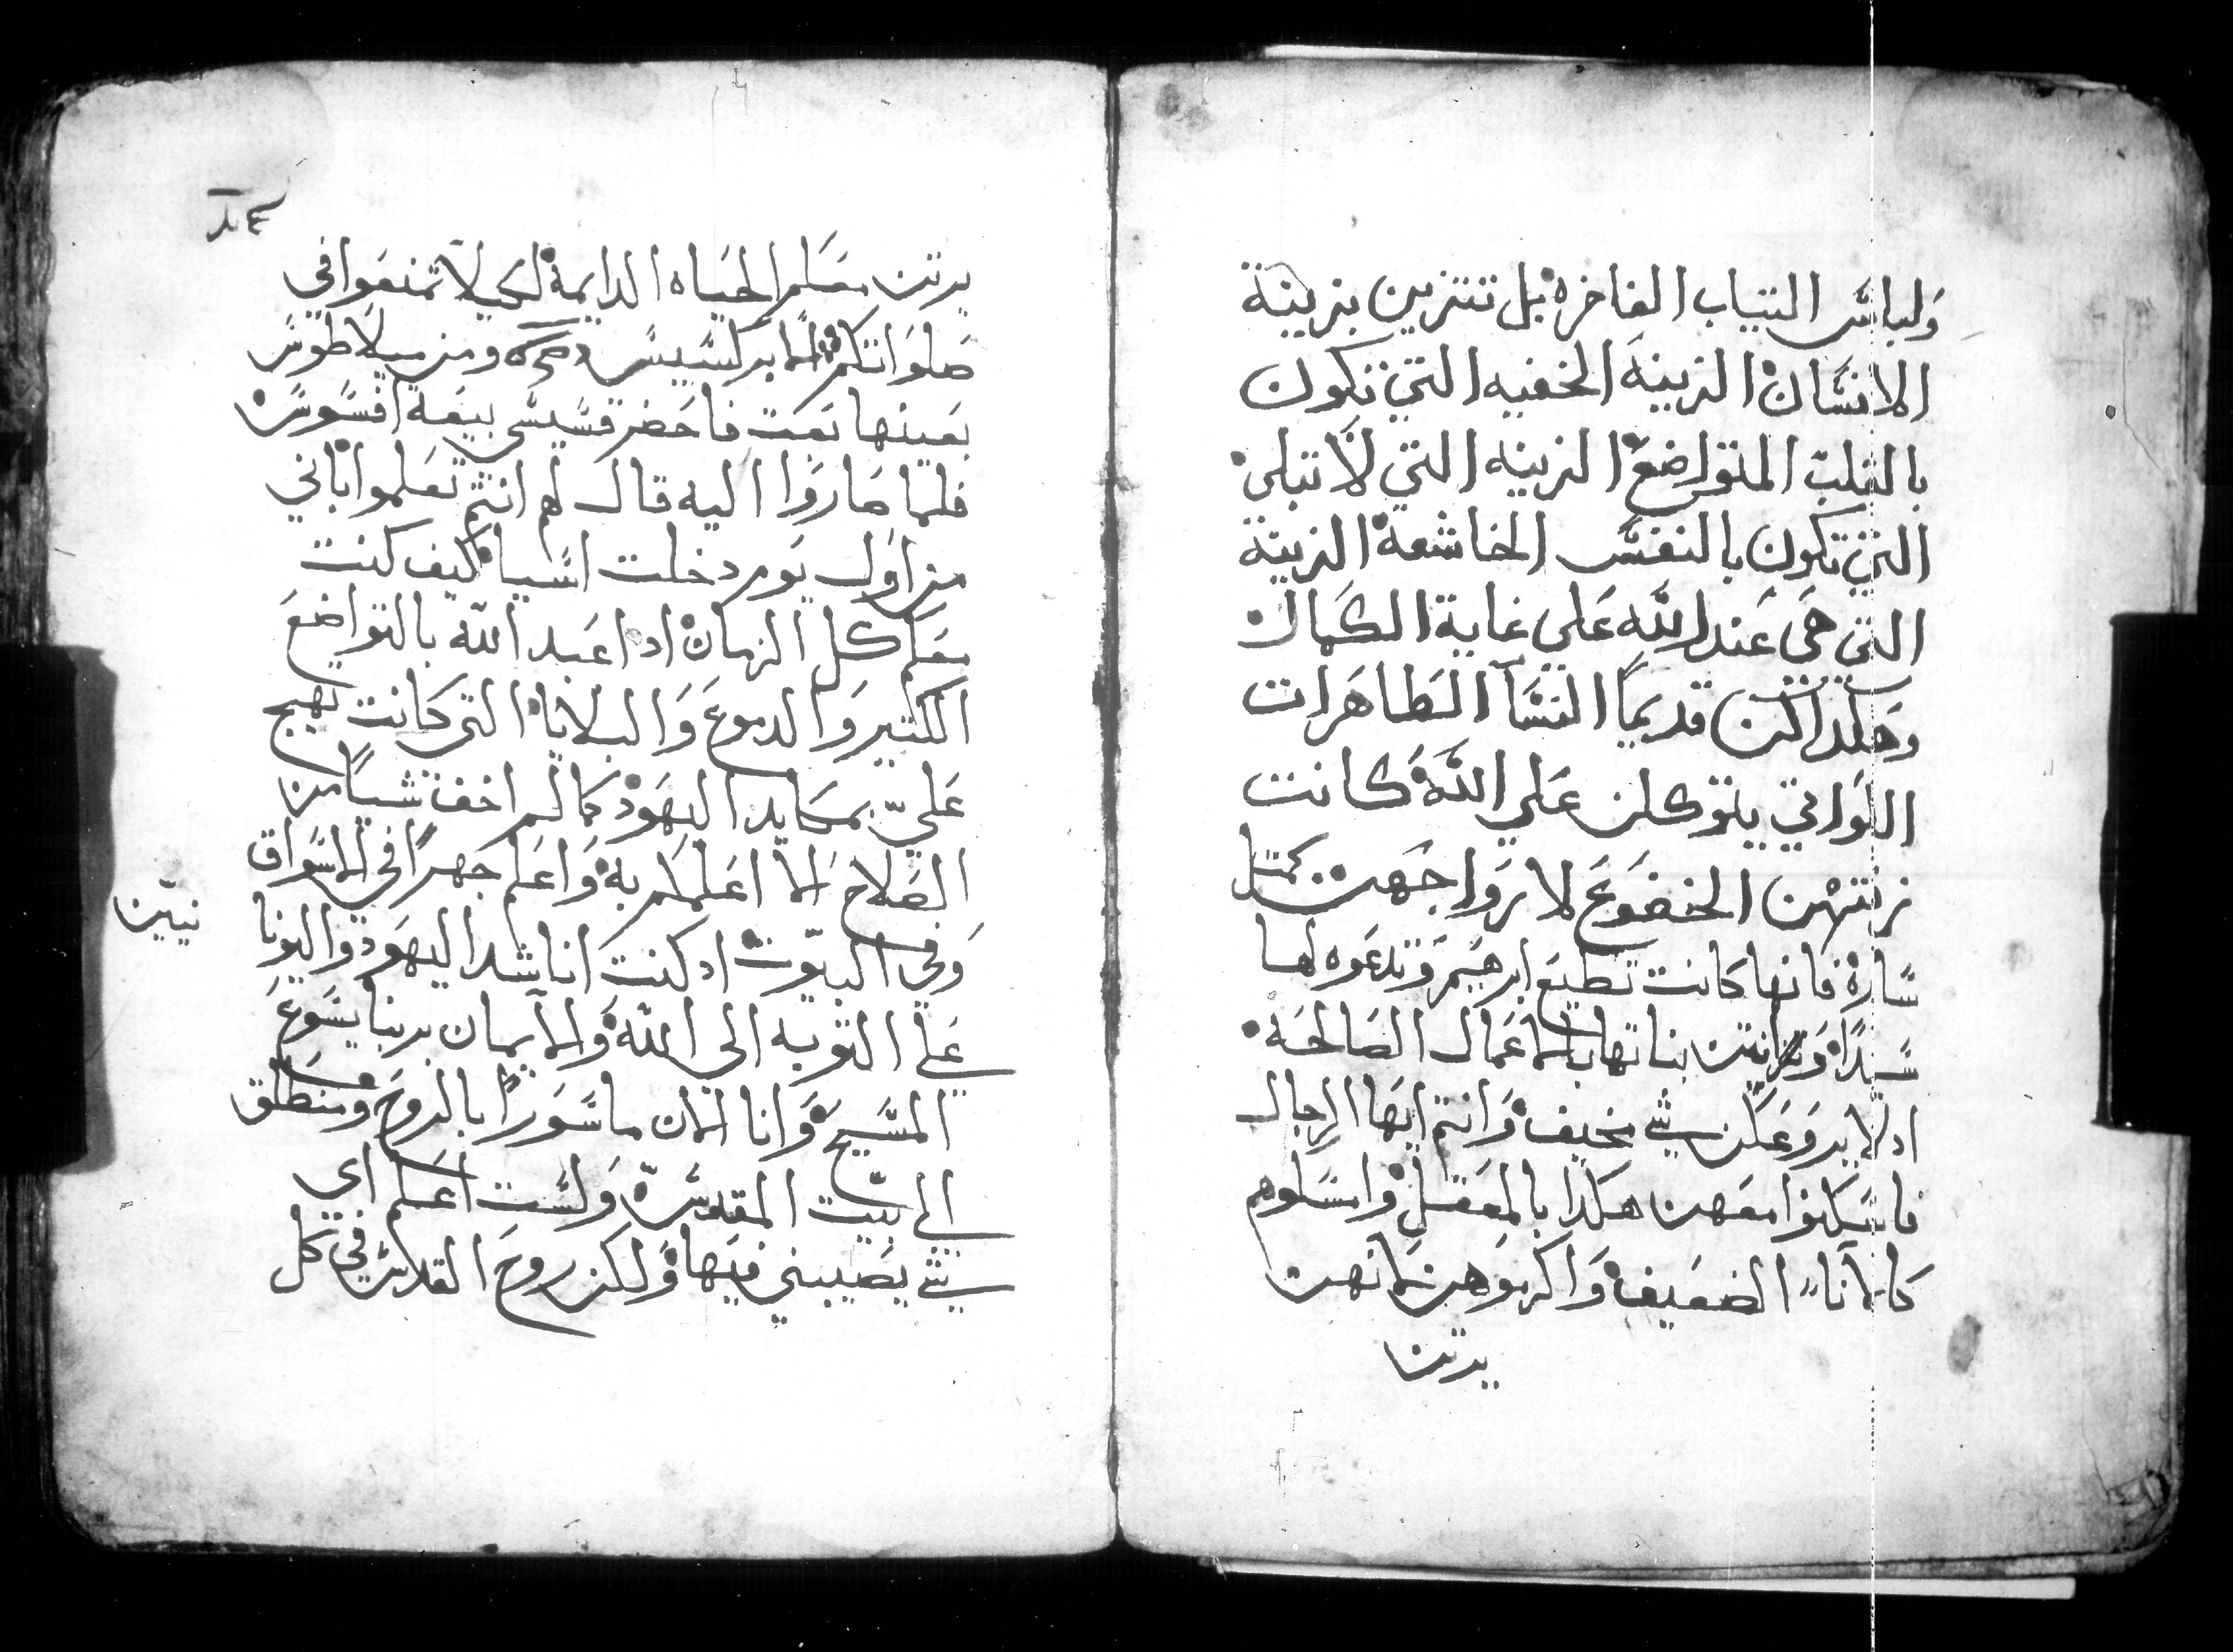 ولباس التياب الفاخره بل تتزين بزينة
الانسان الزينه الخفيه التي تكون
بالقلب المتواضع الزينه التي لا تبلى
التي تكون بالنفس الخاشعة الزينة
التي هي عند الله على غاية الكمال
وهكداكن قديمًا النسآ الطاهرات
اللواتي يتوكلن على الله كانت
زنتهن الخضوع لازواجهن كمتل
ساره فانها كانت تطيع ابرهيم وتدعوه لها
سيدًا وكانتن بناتها بالاعمال الصالحه
اد لا يروعكن شي مخيف وانتم ايها الرجال
فاسكنوا معهن هكدا بالمعقل وامسلوهم
كالانآء الضعيف واكرموهن لانهن
يرتن
يرتن معكم الحياه الدايمة لكيلا تمنعوا في
صلواتكم الابركسيس ومن ميلاطوس
بعينها بعت فاحضر قسيسي بيعة افسوس
فلما صاروا اليه قال لهم انتم تعلموا اني
من اول يوم دخلت اسيا كيف كنت
معكم كل الزمان اد اعبد الله بالتواضع
الكتير والدموع والبلايا التي كانت تهيج
عليّ بمكايد اليهود كما لم اخف شيا من
الصلاح الا اعلمكم به واعلم جهرًا في الاسواق
وفي البيوت اد كنت اناشد اليهود واليونا
نيين
على التوبه الى الله والايمان بربنا يسوع
المسيح وانا الان ماسورًا بالروح ومنطلق
الى بيت المقدس ولست اعلم اي
شي يصيبني فيها ولكن روح القدس في كل